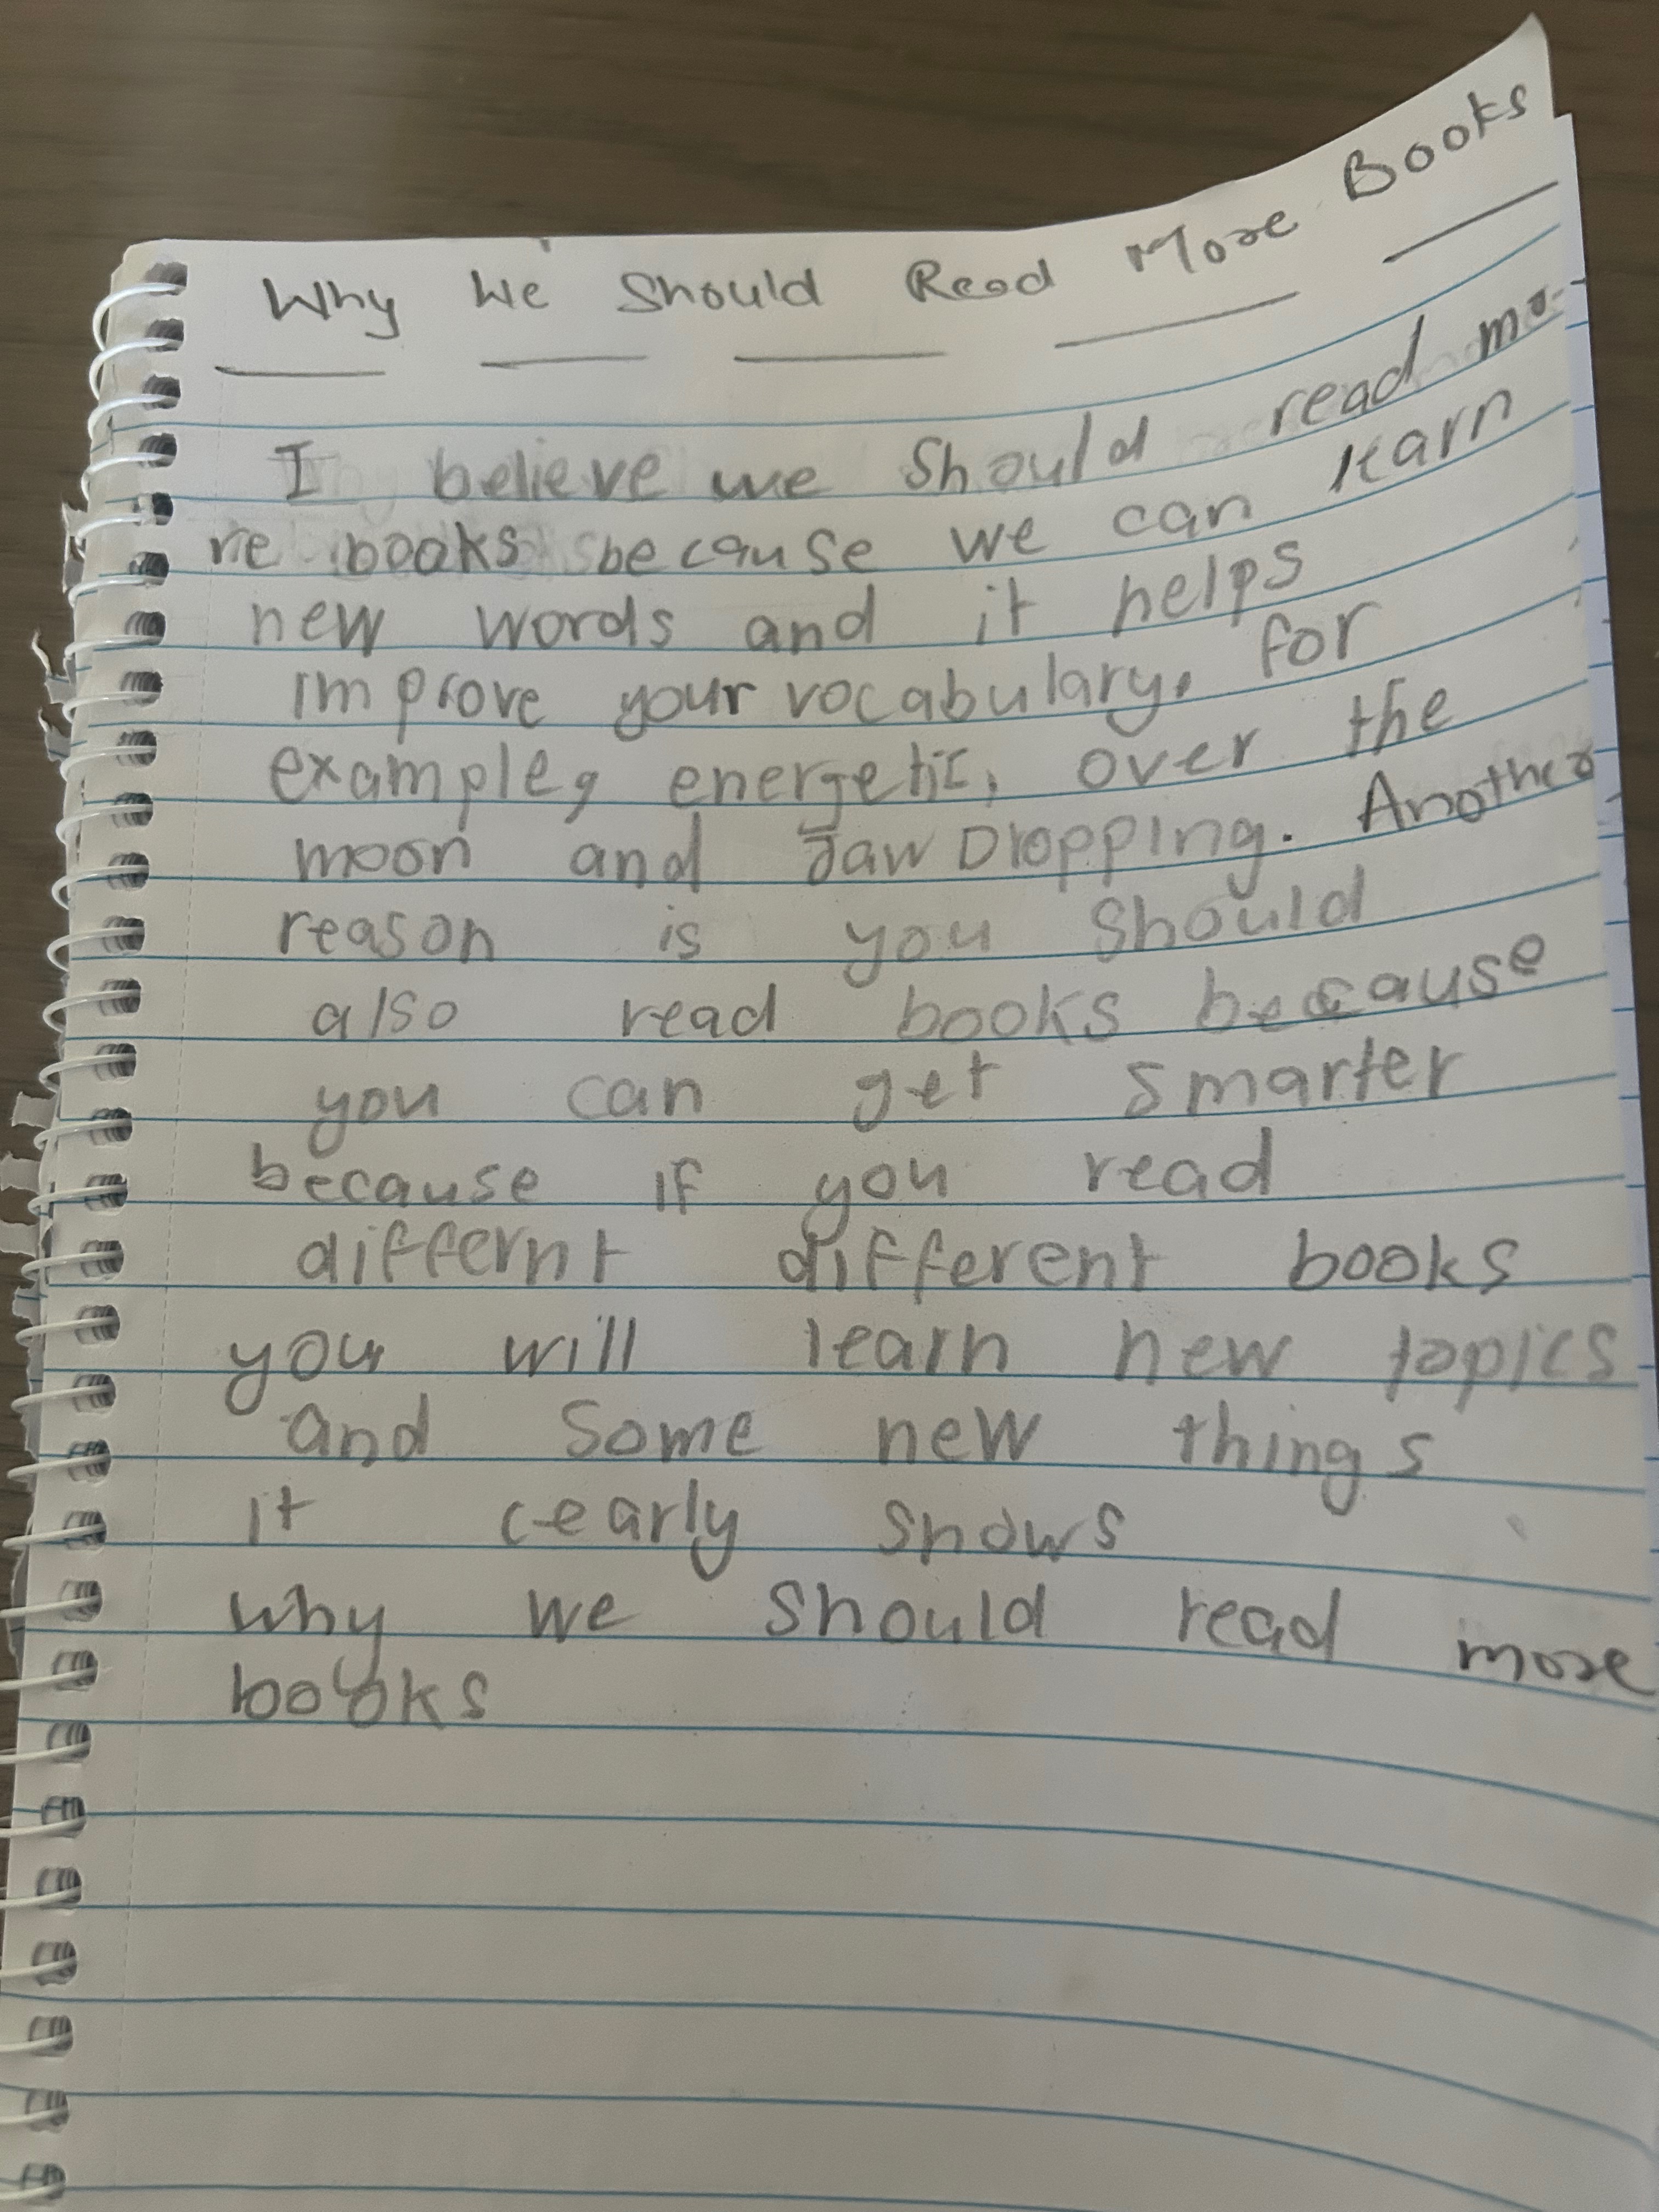 Why We Should Read More Books
I believe we should read mo-
re books because we can learn
new words and it helps
improve your vocabulary. for
example, energetic, over the
moon and Jaw Dropping. Another
reason is you should
also read books because
you can get smarter
because if you read
differnt different books
you will learn new topics
and some new things
it cearly shows
why we should read more
books